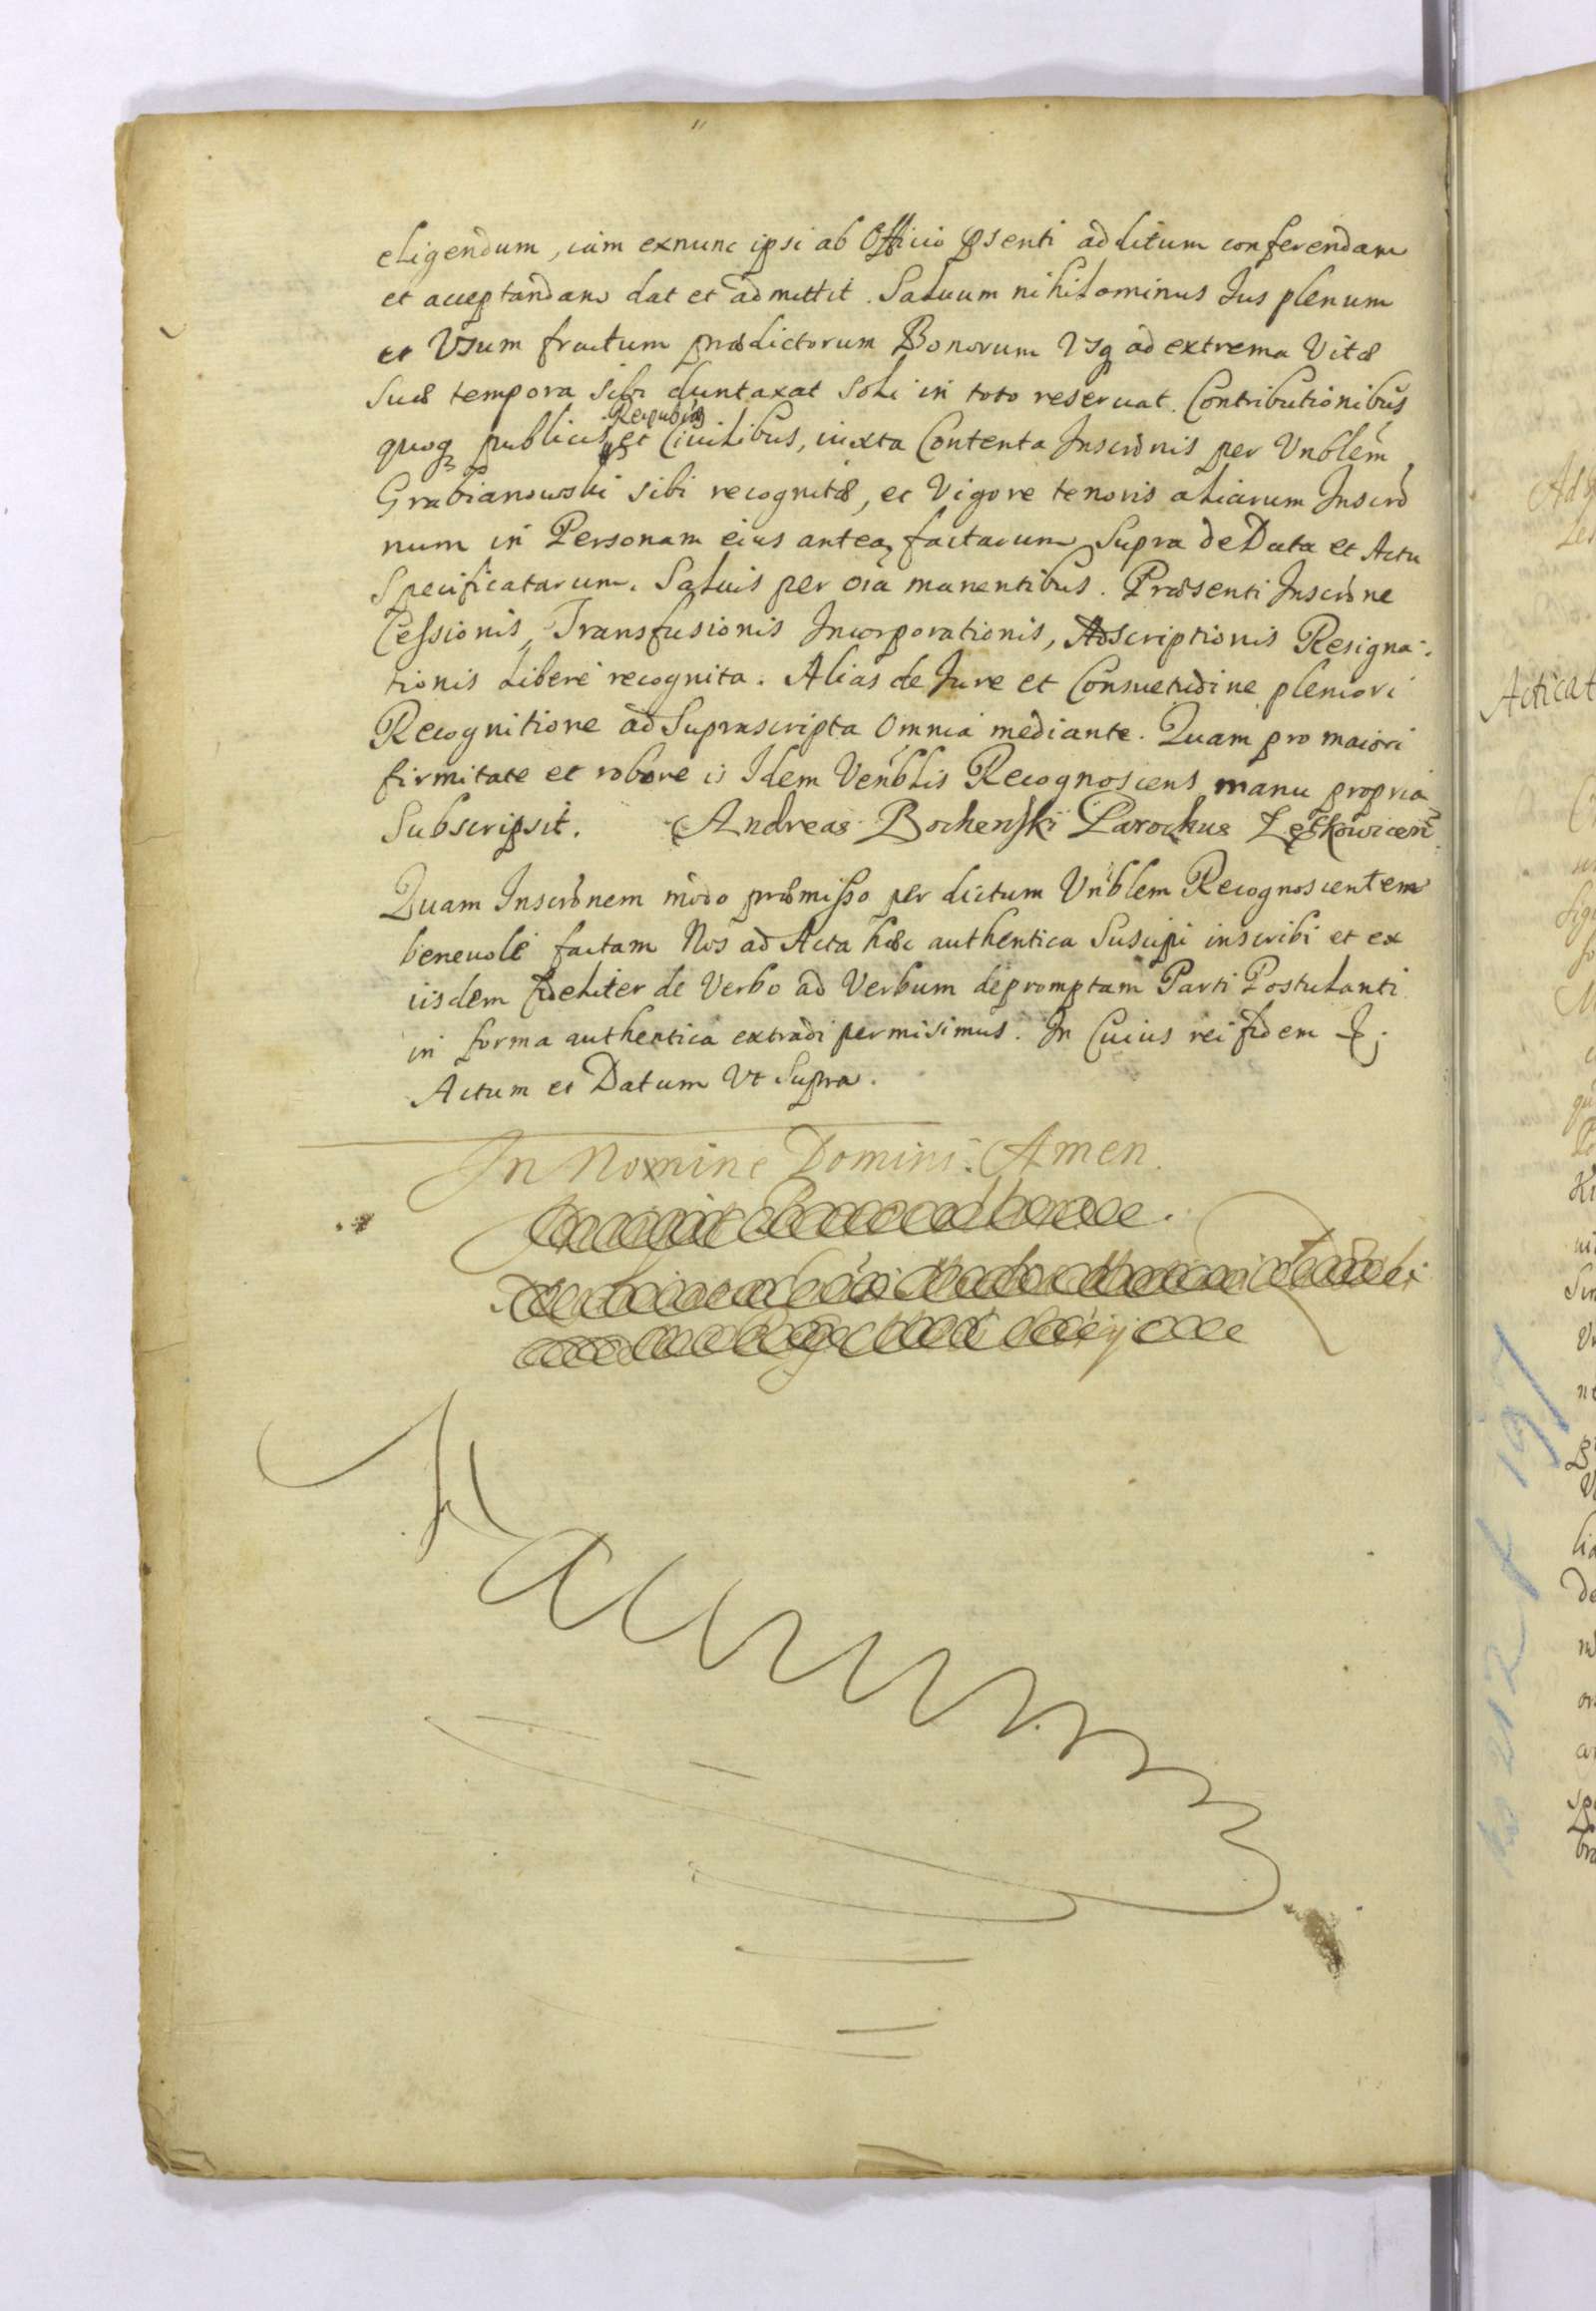 eligendum, iam exnunc ipsi ab Officio pśenti aditum conferendam
et acceptandam dat et admittit. Saluum nihilominus Ius plenum
et Vsum fructum prædictorum Bonorum Vsq ad extrema Vitæ
suæ tempora sibi duntaxat soli in toto reseruat. Contributionibus
quoq publicis Reipubcæ et Ciuilibus, iuxta Contenta Inscrõnis per Vnblem
Grabianowski sibi recognitæ, et Vigore tenoris aliarum Inscrõ
num in Personam eius antea factarum supra de Data et Actu
Specificatarum. Saluis per oia manentibus. Præsenti Inscrõne
Cessionis, Transfusionis Incorporationis, Adscriptionis Resigna-
tionis Liberè recognita. Alias de Iure et Consuetudine pleniori
Recognitione ad Suprascripta Omnia mediante. Quam pro maiori
firmitate et robore is Idem Venblis Recognoscens manu propria
Subscripsit. Andreas Bochenski Parochus Leskowicen
Quam Inscrõnem modo præmisso per dictum Vnblem Recognoscentem
beneuolè factam Nos ad Acta hæc authentica Suscipi inscribi et ex
iisdem fideliter de Verbo ad Verbum depromptam Parti Postulanti
in forma authentica extradi permisimus. In Cuius rei fidem &.
Actum et Datum Vt Supra.
In Nomine Domini Amen.
Acticat